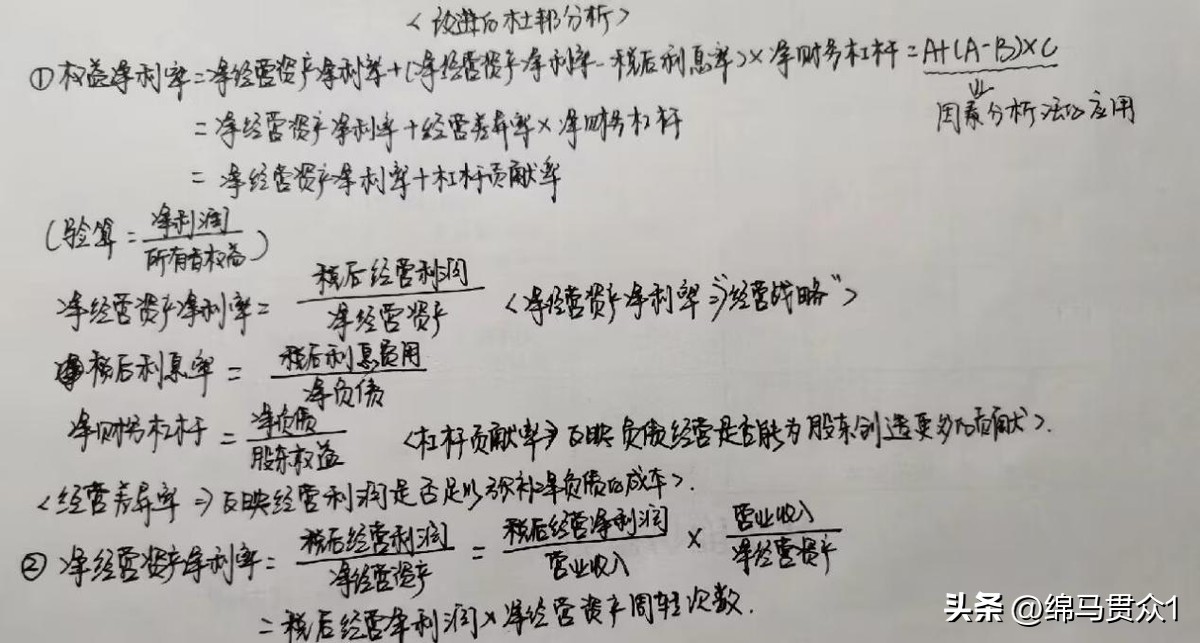 <改进的杜邦分析>
①权益净利率=净经营资产净利率+(净经营资产净利率-税后利息率)×净财务杠杆=A+(A-B)×C
⇓
因素分析法的应用
=净经营资产净利率+经营差异率×净财务杠杆
=净经营资产净利率+杠杆贡献率
(验算=净利润/所有者权益)
净经营资产净利率=税后经营利润/净经营资产 <净经营资产净利率⇒"经营战略">
税后利息率=税后利息费用/净负债
净财务杠杆=净负债/股东权益 <杠杆贡献率⇒反映负债经营是否能为股东创造更多的贡献>.
<经营差异率⇒反映经营利润是否足以弥补净负债的成本>.
②净经营资产净利率=税后经营利润/净经营资产=税后经营净利润/营业收入×营业收入/净经营资产
=税后经营净利润×净经营资产周转次数.
头条 @绵马贯众1